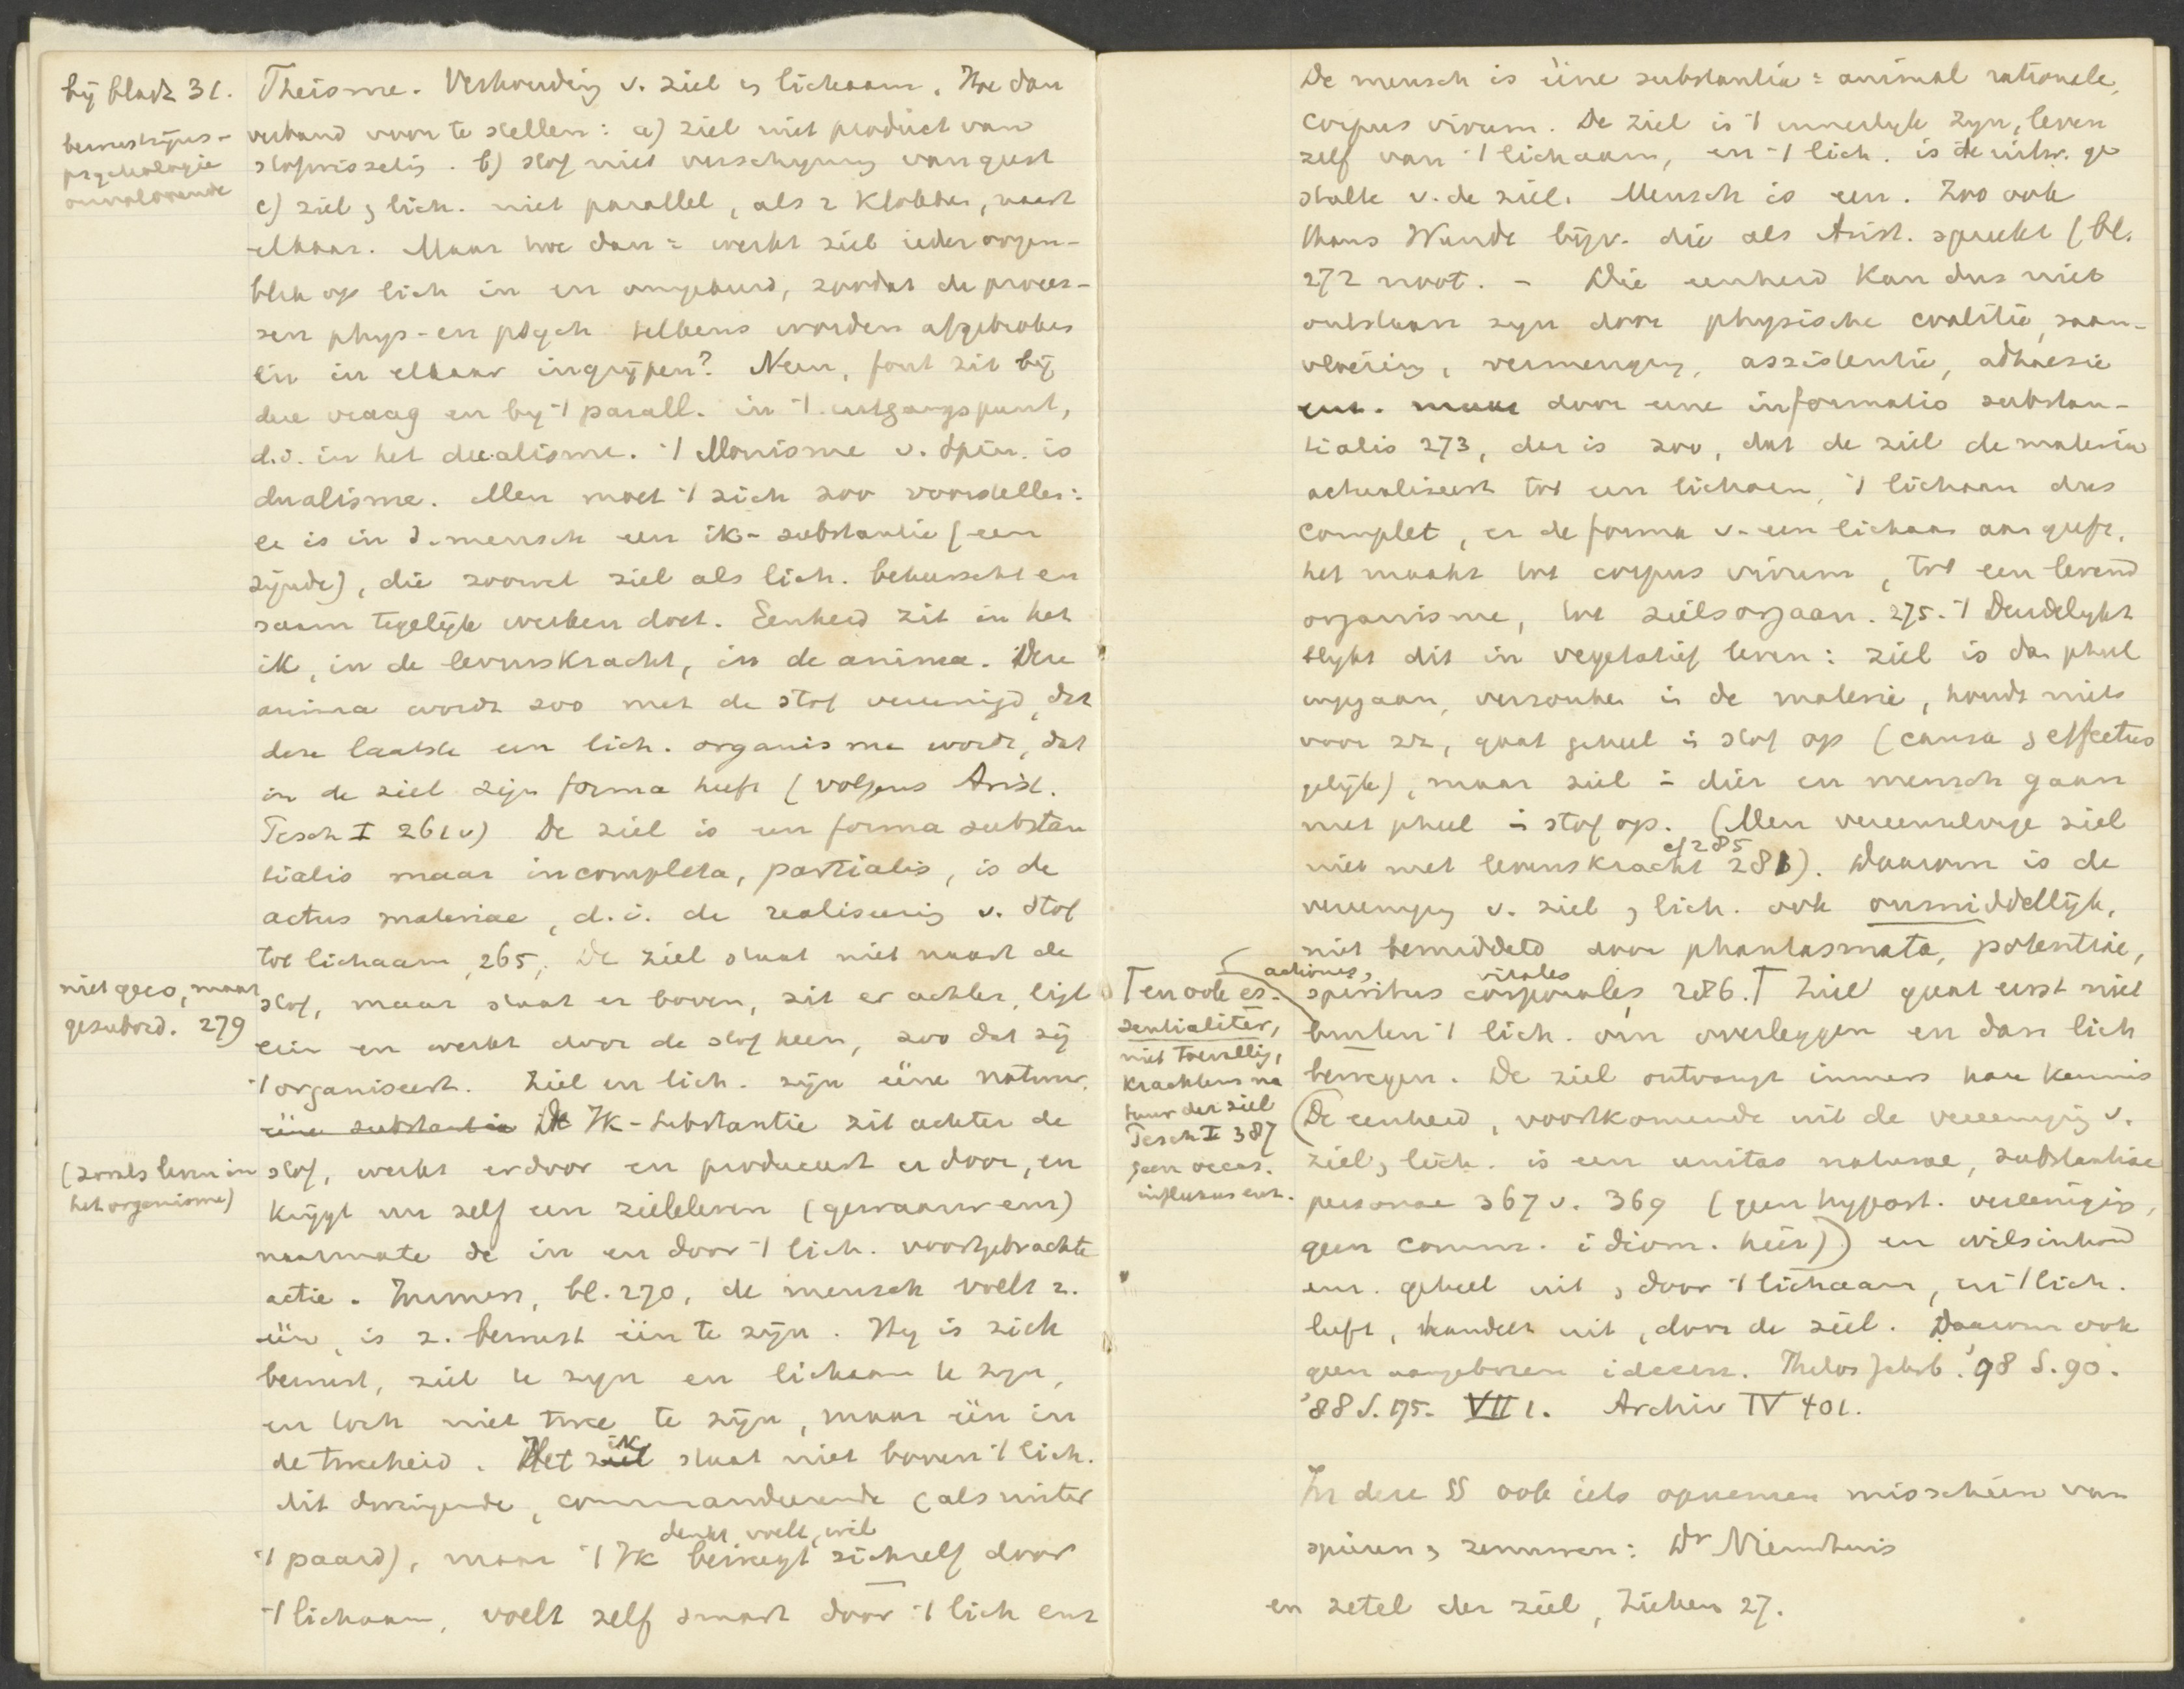 bij bladz 31.
bewustzijns-
psychologie
onvoldoende
Theisme. Verhouding v. ziel en lichaam. Hoe dan
verband voor te stellen: a) ziel niet product van
stofwisseling. b) stof niet verschijning van geest
c) ziel en lich. niet parallel, als 2 klokken, naast
elkaar. Maar hoe dan = werkt ziel ieder oogen-
blik op lich in en omgekeerd, zoodat de proces-
sen phys- en psych telkens worden afgebroken
en in elkaar ingrijpen? Neen, fout zit bij
deze vraag en bij 't parall. in 't uitgangspunt,
d.i. in het dualisme. 't Monisme v. Spin. is
dualisme. Men moet 't zich zoo voorstellen:
er is in d. mensch een ik-substantie (een
zijnde), die zoowel ziel als lich. beheerscht en
saam tegelijk werken doet. Eenheid zit in het
ik, in de levenskracht, in de anima. Deze
anima wordt zoo met de stof vereenigd, dat
deze laatste een lich. organisme wordt, dat
in de ziel zijn forma heeft (volgens Arist.
Pesch I 261 v) De ziel is een forma substan
tialis maar incompleta, partialis, is de
actus materiae, d.i. de realiseering v. stof
tot lichaam, 265, De ziel staat niet naast de
niet geco, maar
gesubord. 279
stof, maar staat er boven, zit er achter, ligt
erin en werkt door de stof heen, zoo dat zij
't organiseert. Ziel en lich. zijn ééne natuur.
ééne substantie De Ik-substantie zit achter de
(zooals leven in
het organisme)
stof, werkt erdoor en produceert er door, en
krijgt nu zelf een zieleleven (gewaarw enz)
naarmate de in en door 't lich. voortgebrachte
actie. Immers, bl. 270, de mensch voelt z.
één, is z. bewust één te zijn. Hij is zich
bewust, ziel te zijn en lichaam te zijn,
en toch niet twee te zijn, maar één in
de tweeheid. Het ziel ik staat niet boven 't lich.
dit dwingende, commandeerende (als ruiter
't paard), maar 't Ik denkt, voelt, wil beweegt zichzelf door
't lichaam, voelt zelf smart door 't lich enz
De mensch is ééne substantia = animal rationale,
corpus vivum. De ziel is 't innerlijk zijn, leven
zelf van 't lichaam, en 't lich. is de uitw. ge
stalte v. de ziel. Mensch is een. Zoo ook
thans Wundt bijv. die als Arist. spreekt (bl.
272 noot. - Die eenheid kan dus niet
ontstaan zijn door physische coalitie, saam-
vloeiing, vermenging, assistentie, adhaesie
enz. maar door eene informatio substan-
tialis 273, dat is zoo, dat de ziel de materia
actualiseert tot een lichaam, 't lichaam dus
complet, er de forma v. een lichaam aan geeft,
het maakt tot corpus vivum, tot een levend
organisme, tot zielsorgaan. 275. 't Duidelijkst
blijkt dit in vegetatief leven: ziel is daar geheel
opgegaan, verzonken in de materie, houdt niets
voor zich, gaat geheel in stof op (causa en effectus
gelijk), maar ziel in dier en mensch gaan
niet geheel in stof op. (Men vereenzelvige ziel
niet met levenskracht 281 cf 285). Daarom is de
vereeniging v. ziel en lich. ook onmiddellijk,
niet bemiddeld door phantasmata, potentiae,
actiones, spiritus corporales vitales 286. Ziel gaat eerst niet
T en ook es-
sentialiter,
niet toevallig,
krachtens na
tuur der ziel
Pesch I 387
geen occas.
influxus enz.
buiten 't lich. om overleggen en dan lich
bewegen. De ziel ontvangt immers haar kennis
(De eenheid, voortkomende uit de vereeniging v.
ziel en lich. is een unitas naturae, substantiae
personae 367 v. 369 (geen hypost. vereeniging,
geen comm. idiom. hier)) en wilsinhoud
enz. geheel uit en door 't lichaam, en 't lich.
leeft, handelt uit, door de ziel. Daarom ook
geen aangeboren ideeen. Philos Jahrb. '98 S. 90.
'88 S. 175. VII 1. Archiv IV 401.
In deze §§ ook iets opnemen misschien van
spieren en zenuwen: Dr Nieuwhuis
en zetel der ziel, Ziehen 27.